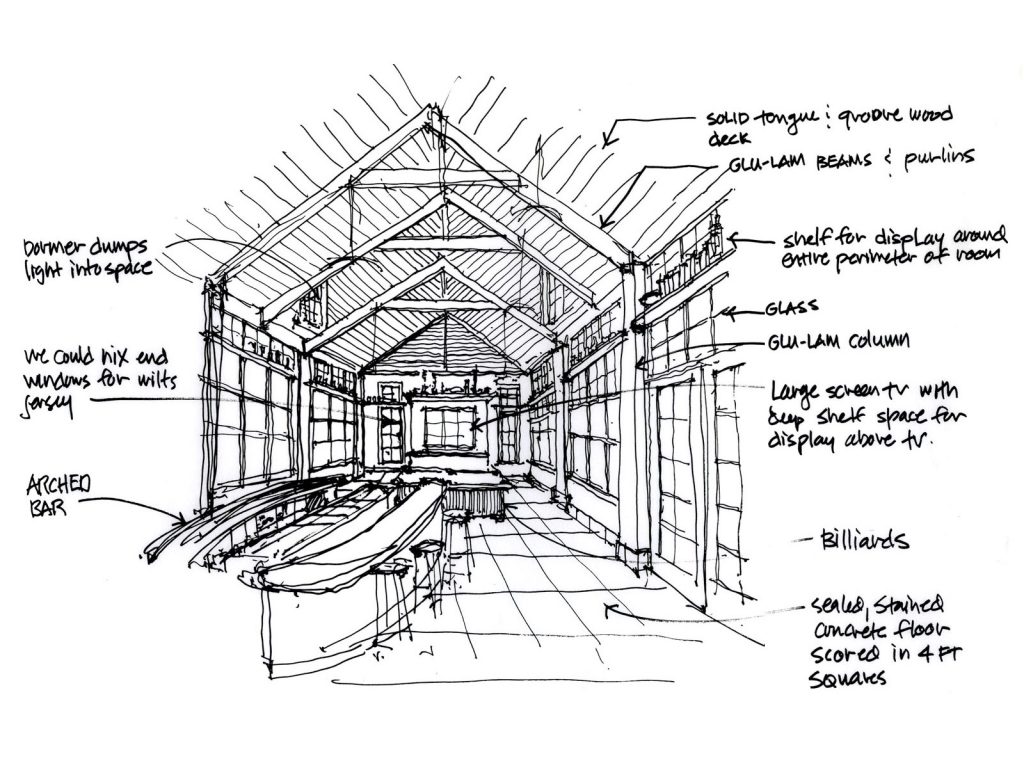 SOLID tongue & groove wood
deck
GLU-LAM BEAMS & purlins
Dormer dumps
light into space
shelf for display around
entire perimeter of room
GLASS
GLU-LAM COLUMN
we could nix end
windows for wilts
jersey
Large screen tv with
deep shelf space for
display above tv.
ARCHED
BAR
Billiards
sealed, stained
concrete floor
scored in 4 FT
squares